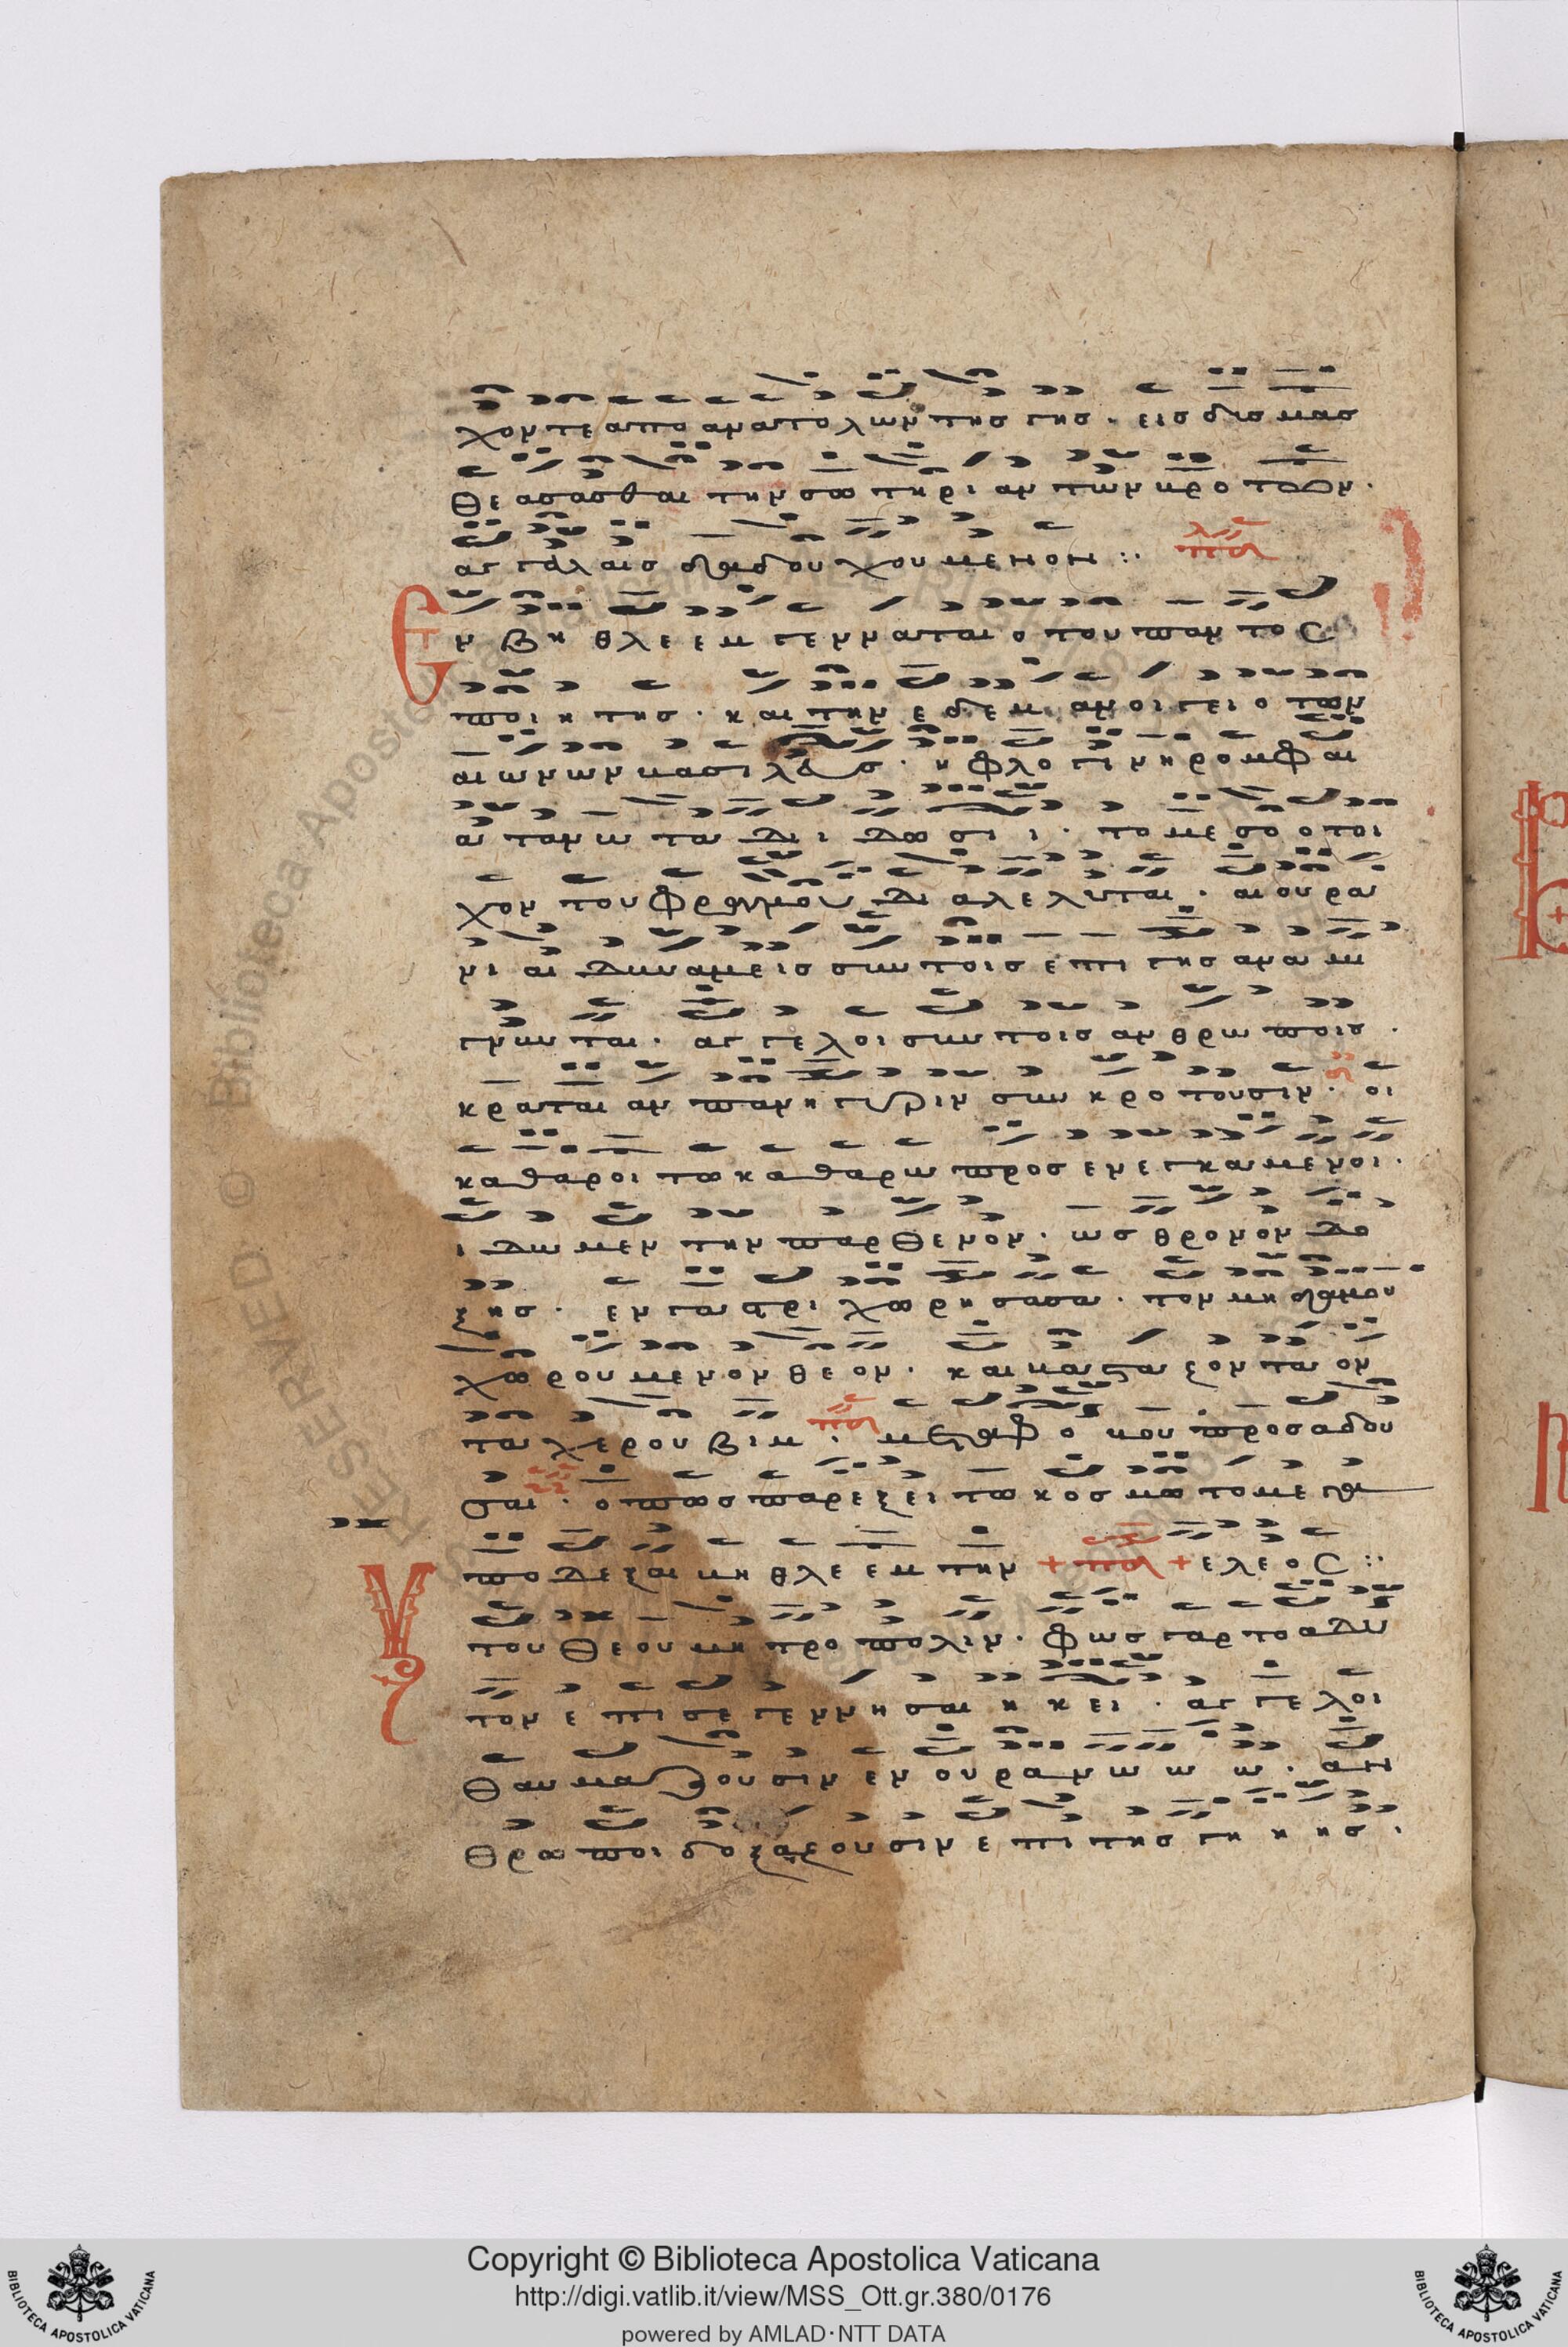 χον τε απο ανατολων της γης · εις δυσμας
θεασασθαι την σωτηριαν των βροτων ·
αγ γαλαις δαδουχουμενον :·
Εν βηθλεεμ γενναται ο του παντος
ποιητης · και την εδεμ ανοιγει ο των
αιωνων βασιλευς · η φλογινη ρομφαι
α τα νωτα διδωσι ι · το μεσοτοι
χον του φραγμου διαλελυται · αι ουρα
νι αι δυναμεις συν τοις επι της ανα μι
γνυνται · αγγελοι συν τοις ανθρωποις ·
κραται αν πανηγυριν συνκροτουσιν · οι
καθαροι τω καθαρω προσενεγκαμενοι ·
ιδωμεν την παρθενον · ως θρονον δο
ξης · εν γαστρι χωρησασα · τον μηδαμου
χωρουμενον θεον · και βασταζονται ον
τα χερουβιμ · μεθ ο κου προσαδου
σαι · οπως παρεξει τω κοσμω το μεγα
ελεος :·
Υποδεξαι βηθλεεμ την
του θεου μητροπολιν · φως γαρ το αδυ
τον επι σε γεννησαι η κει · αγγελοι
θαυμαζουσιν εν ουρανω ω ω · αν
θρωποι δοξαζουσιν επι της γη η ης ·
Copyright © Biblioteca Apostolica Vaticana
http://digi.vatlib.it/view/MSS_Ott.gr.380/0176
powered by AMLAD·NTT DATA
BIBLIOTECA APOSTOLICA VATICANA
BIBLIOTECA APOSTOLICA VATICANA